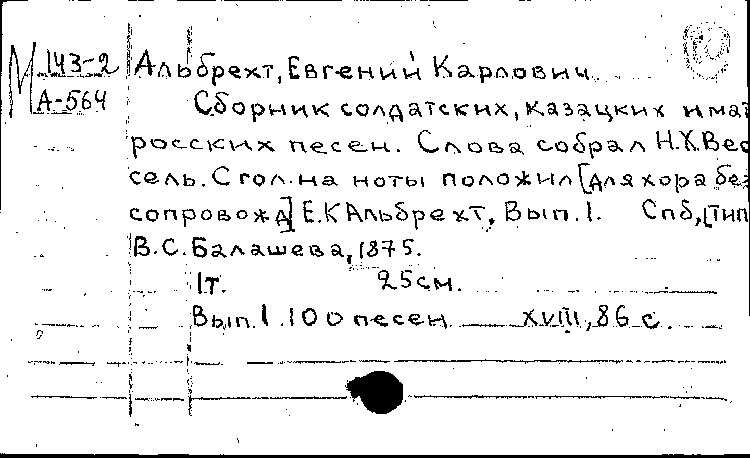 М 143-2
А-564
Альбрехт, Евгений Карлович
Сборник солдатских, казацких и мат
росских песен. Слова собрал Н.Х.Вес
сель. С гол. на ноты положил [для хора без
сопровожд] Е.К Альбрехт, Вып.1. Спб, [тип
В.С. Балашева, 1875.
1т. 25см.
Вып.1. 100 песен XVIII, 86 с.